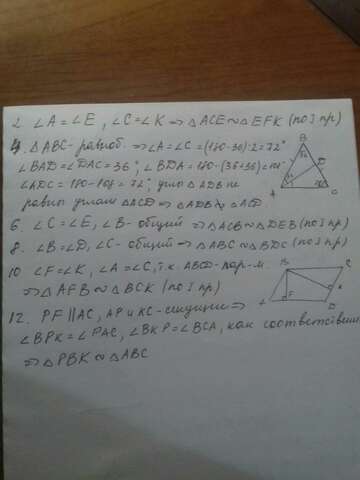 2. ∠A = ∠E, ∠C = ∠K ⇒ △ACE ∾ △EFK (по I пр)
4. △ABC - равноб. ⇒ ∠A = ∠C = (180-36):2 = 72°
∠BAD = ∠DAC = 36°, ∠BDA = 180-(36+36) = 108°
∠ADC = 180-108 = 72°, углы △ADB не
равны углам △ACD ⇒ △ADB ≁ △ACD
6. ∠C = ∠E, ∠B - общий ⇒ △ACB ∾ △DEB (по I пр)
8. ∠B = ∠D, ∠C - общий ⇒ △ABC ∾ △BDC (по I пр)
10. ∠F = ∠K, ∠A = ∠C, т.к. ABCD - пар-м.
⇒ △AFB ∾ △BCK (по I пр)
12. PF ∥ AC, AP и KC - секущие ⇒
∠BPK = ∠PAC, ∠BKP = ∠BCA, как соответствен
⇒ △PBK ∾ △ABC
B
D
A
C
B
C
K
F
D